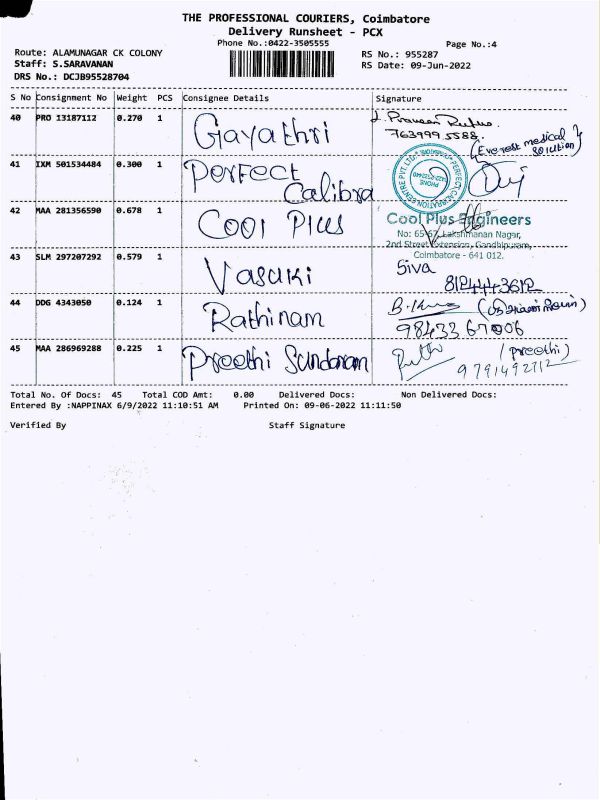 THE PROFESSIONAL COURIERS, Coimbatore
Delivery Runsheet - PCX
Phone No.:0422-3505555
Page No.:4
Route: ALAMUNAGAR CK COLONY
RS No.: 955287
Staff: S.SARAVANAN
RS Date: 09-Jun-2022
DRS No.: DCJB95528704
S No Consignment No Weight PCS Consignee Details Signature
40 PRO 13187112 0.270 1 Gayathri J. Praveen
763999 5588.
(Everest medical solution)
41 IXM 501534484 0.300 1 Perfect Calibra
42 MAA 281356590 0.678 1 Cool Plus
Cool Plus Engineers
No: 65-67, Lakshmanan Nagar,
2nd Street Extension, Gandhipuram,
Coimbatore - 641 012.
43 SLM 297207292 0.579 1 Vasuki Siva
8124443612
44 DDG 4343050 0.124 1 Rathinam
98433 67006
45 MAA 286969288 0.225 1 Preethi Sundaram (preethi)
9791492712
Total No. Of Docs: 45 Total COD Amt: 0.00 Delivered Docs: Non Delivered Docs:
Entered By :NAPPINAX 6/9/2022 11:10:51 AM Printed On: 09-06-2022 11:11:50
Verified By Staff Signature